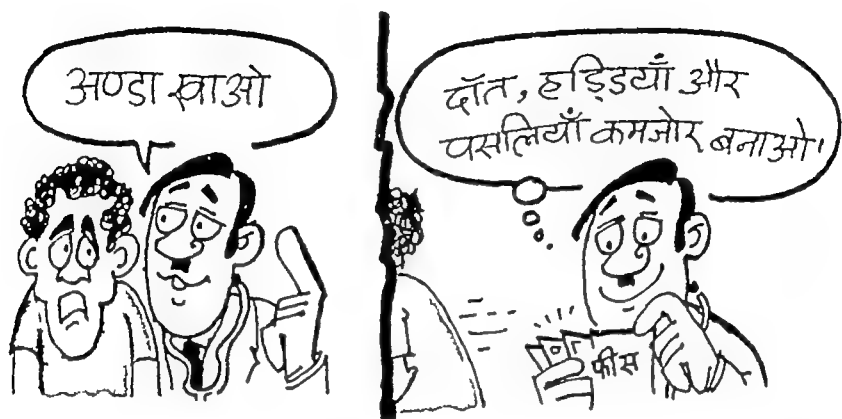 अण्डा खाओ
दाँत, हड्डियाँ और
पसलियाँ कमजोर बनाओ।
फीस